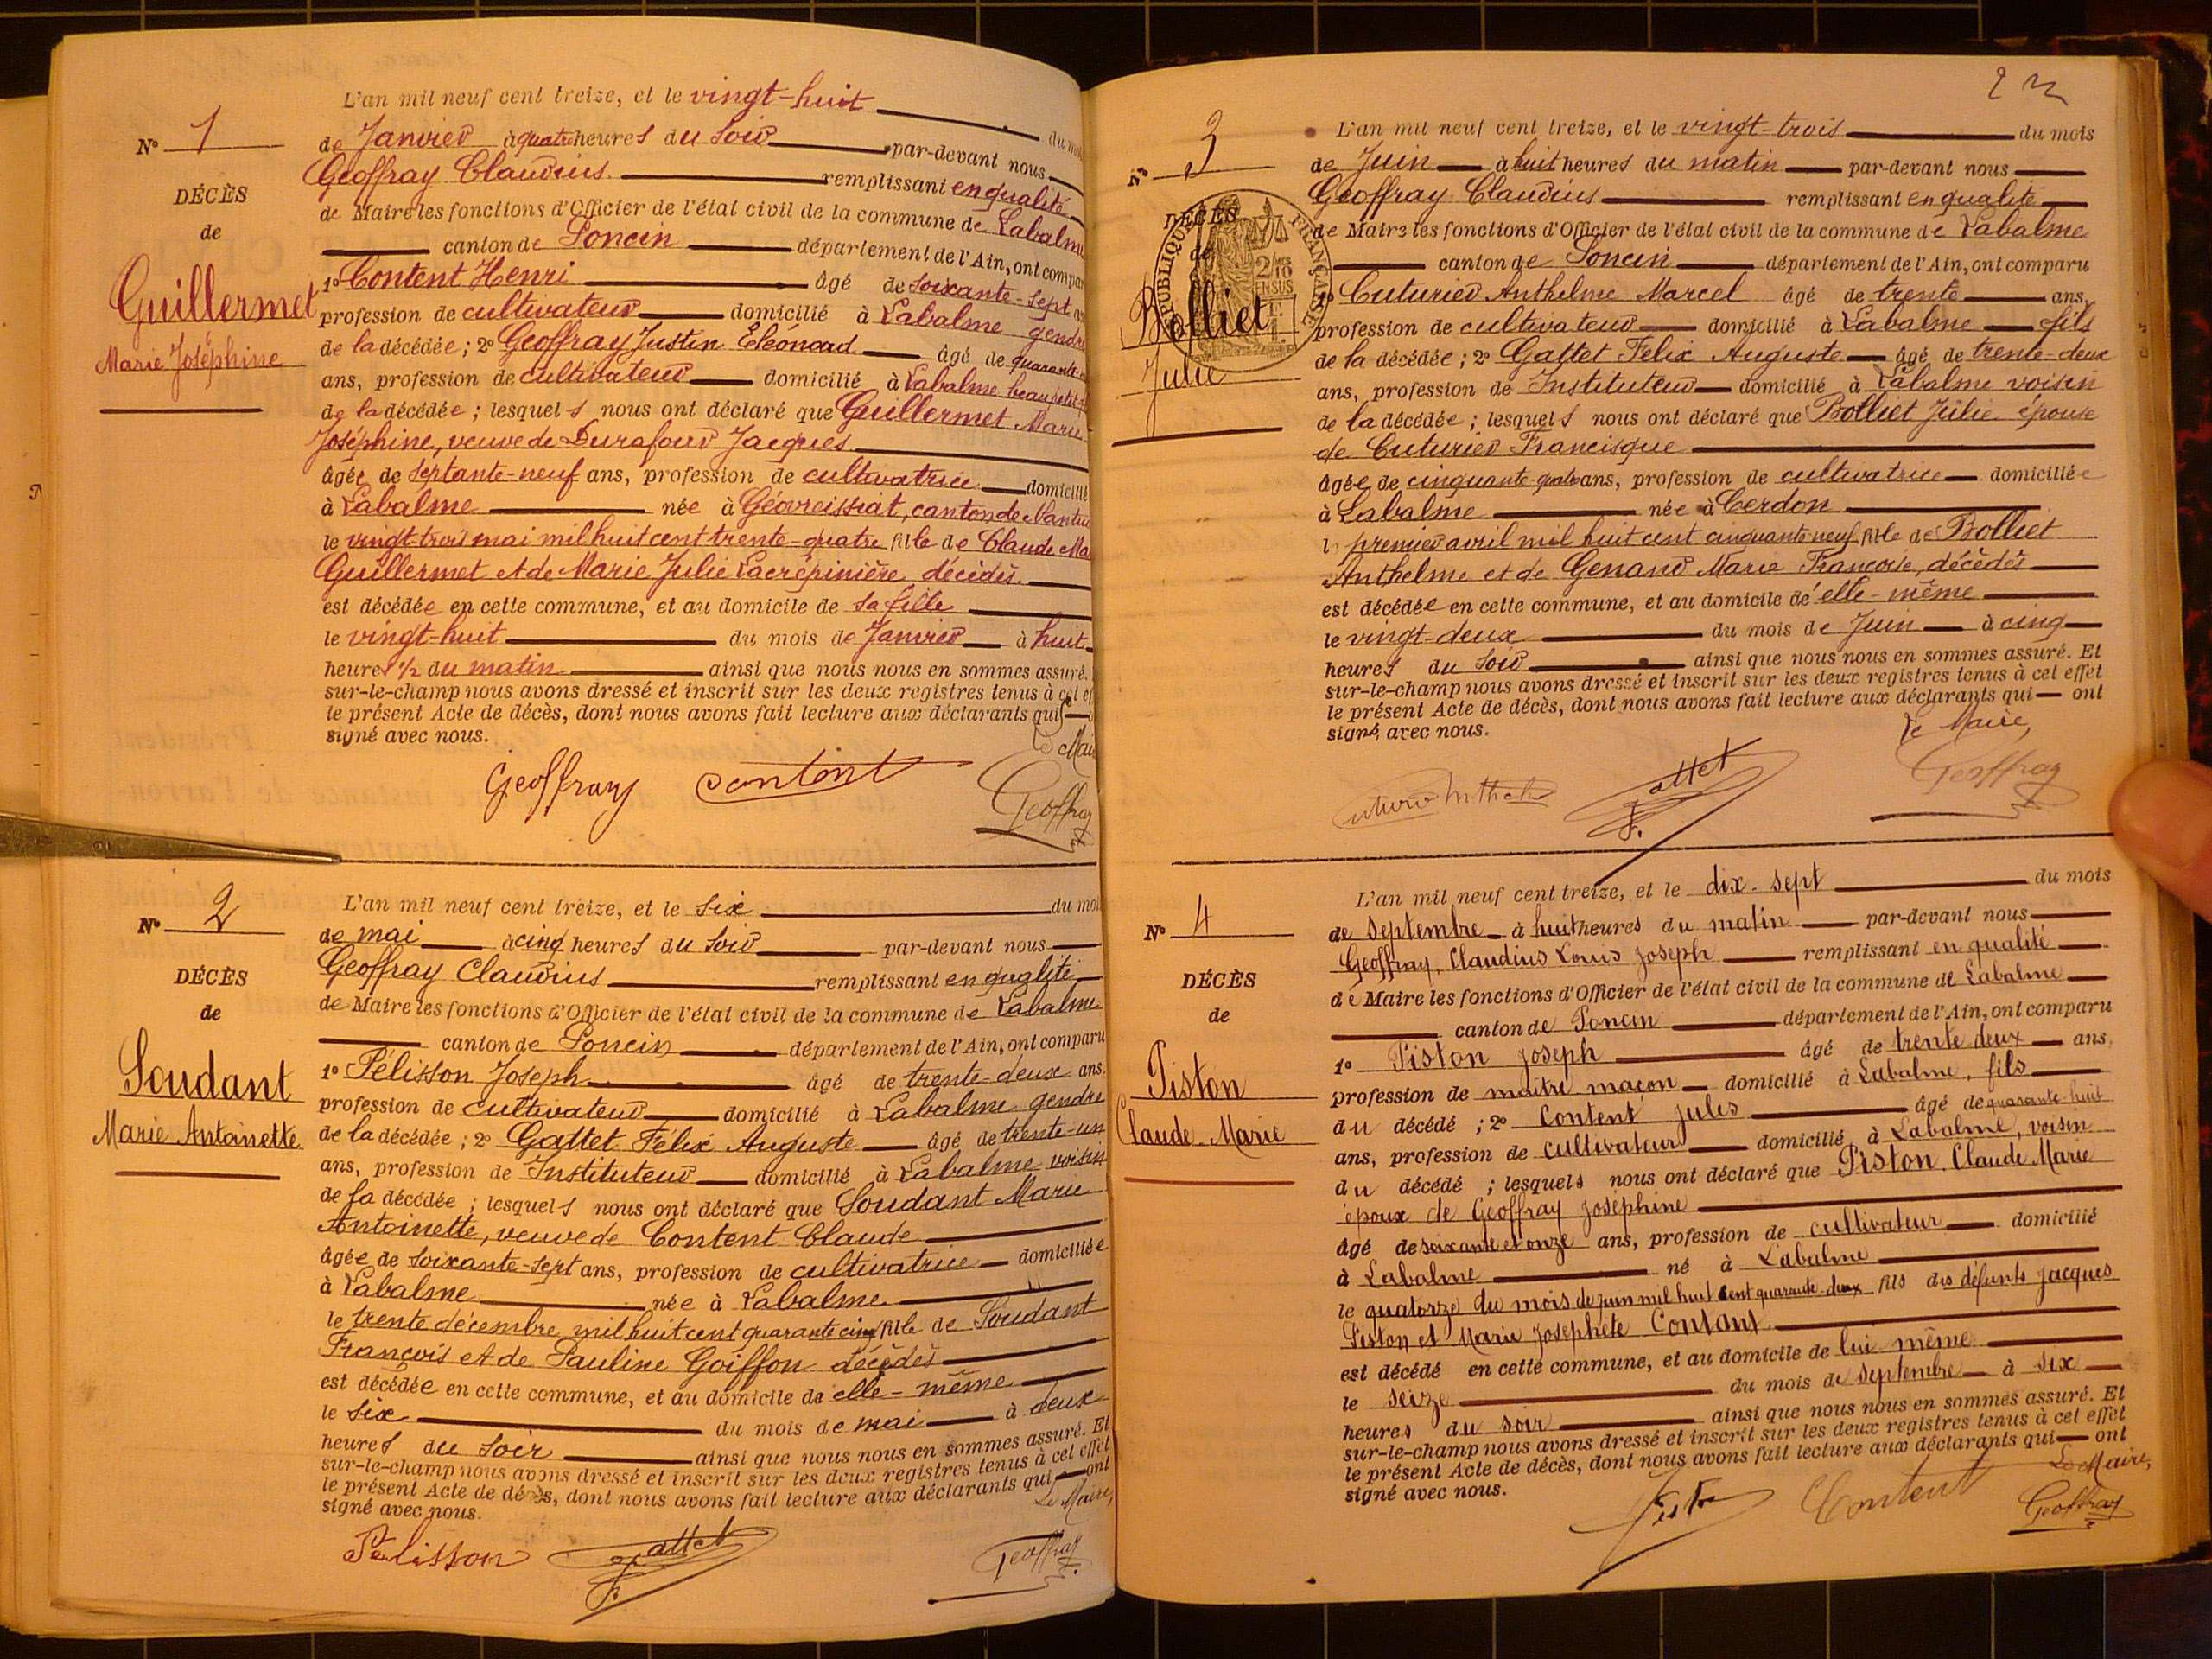 N° 1
DÉCÈS
de
Guillermet
Marie Joséphine
L'an mil neuf cent treize, et le vingt-huit du
de Janvier à quatre heures du soir par-devant nous
Geoffray Claudius remplissant en qualité
de Maire les fonctions d'Officier de l'état civil de la commune de Labalme
canton de Poncin département de l'Ain, ont
1° Content Henri âgé de soixante-sept
profession de cultivateur domicilié à Labalme gendre
de la décédée ; 2° Geoffray Justin Eléonard âgé de
ans, profession de cultivateur domicilié à Labalme
de la décédée ; lesquels nous ont déclaré que Guillermet Marie
Joséphine, veuve de Durafour Jacques
âgée de septante-neuf ans, profession de cultivatrice
à Labalme née à Géovreissiat, canton de
le vingt-trois mai mil huit cent trente-quatre fille de Claude
Guillermet et de Marie Julie Lacrépinière décédés
est décédée en cette commune, et au domicile de sa fille
le vingt-huit du mois de Janvier à huit
heures ½ du matin ainsi que nous nous en sommes assuré.
sur-le-champ nous avons dressé et inscrit sur les deux registres tenus à
le présent Acte de décès, dont nous avons fait lecture aux déclarants qui
signé avec nous.
Le
Geoffray Content Geoffray
N° 2
DÉCÈS
de
Soudant
Marie Antoinette
L'an mil neuf cent treize, et le six du
de mai à cinq heures du soir par-devant nous
Geoffray Claudius remplissant en qualité
de Maire les fonctions d'Officier de l'état civil de la commune de Labalme
canton de Poncin département de l'Ain, ont comparu
1° Pélisson Joseph âgé de trente-deux ans.
profession de cultivateur domicilié à Labalme gendre
de la décédée ; 2° Gattet Félix Auguste âgé de trente-un
ans, profession de Instituteur domicilié à Labalme voisin
de la décédée ; lesquels nous ont déclaré que Soudant Marie
Antoinette, veuve de Content Claude
âgée de soixante-sept ans, profession de cultivatrice domiciliée
à Labalme née à Labalme
le trente décembre mil huit cent quarante cinq fille de Soudant
François et de Pauline Goiffon décédés
est décédée en cette commune, et au domicile de elle-même
le six du mois de mai à deux
heures du soir ainsi que nous nous en sommes assuré. Et
sur-le-champ nous avons dressé et inscrit sur les deux registres tenus à cet effet
le présent Acte de décès, dont nous avons fait lecture aux déclarants qui ont
signé avec nous.
Le Maire,
Pélisson Gattet F. Geoffray
N° 3
DÉCÈS
de
Bolliet
Julie
RÉPUBLIQUE FRANÇAISE
L'an mil neuf cent treize, et le vingt-trois du mois
de Juin à huit heures du matin par-devant nous
Geoffray Claudius remplissant en qualité
de Maire les fonctions d'Officier de l'état civil de la commune de Labalme
canton de Poncin département de l'Ain, ont comparu
1° Cuturier Anthelme Marcel âgé de trente ans,
profession de cultivateur domicilié à Labalme fils
de la décédée ; 2° Gattet Félix Auguste âgé de trente-deux
ans, profession de Instituteur domicilié à Labalme voisin
de la décédée ; lesquels nous ont déclaré que Bolliet Julie épouse
de Cuturier Francisque
âgée de cinquante-quatre ans, profession de cultivatrice domiciliée
à Labalme née à Cerdon
le premier avril mil huit cent cinquante neuf fille de Bolliet
Anthelme et de Genand Marie Françoise, décédés
est décédée en cette commune, et au domicile de elle-même
le vingt-deux du mois de Juin à cinq
heures du soir ainsi que nous nous en sommes assuré. Et
sur-le-champ nous avons dressé et inscrit sur les deux registres tenus à cet effet
le présent Acte de décès, dont nous avons fait lecture aux déclarants qui ont
signé avec nous.
Le Maire,
Gattet F. Geoffray
N° 4
DÉCÈS
de
Piston
Claude-Marie
L'an mil neuf cent treize, et le dix-sept du mois
de septembre à huit heures du matin par-devant nous
Geoffray, Claudius Louis Joseph remplissant en qualité
de Maire les fonctions d'Officier de l'état civil de la commune de Labalme
canton de Poncin département de l'Ain, ont comparu
1° Piston Joseph âgé de trente deux ans,
profession de maître maçon domicilié à Labalme, fils
du décédé ; 2° Content Jules âgé de quarante-huit
ans, profession de cultivateur domicilié à Labalme, voisin
du décédé ; lesquels nous ont déclaré que Piston Claude Marie
époux de Geoffray Joséphine
âgé de soixante et onze ans, profession de cultivateur domicilié
à Labalme né à Labalme
le quatorze du mois de juin mil huit cent quarante-deux fils des défunts Jacques
Piston et Marie Josephete Contant
est décédé en cette commune, et au domicile de lui même
le seize du mois de septembre à six
heures du soir ainsi que nous nous en sommes assuré. Et
sur-le-champ nous avons dressé et inscrit sur les deux registres tenus à cet effet
le présent Acte de décès, dont nous avons fait lecture aux déclarants qui ont
signé avec nous.
Le Maire,
Content Geoffray